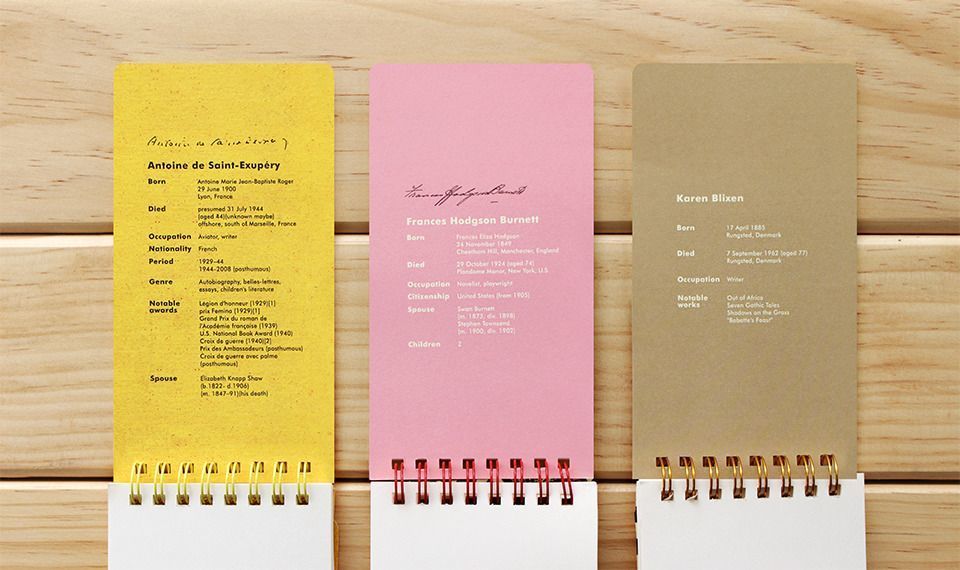 Antoine de Saint-Exupéry
Antoine de Saint-Exupéry
Born Antoine Marie Jean-Baptiste Roger
29 June 1900
Lyon, France
Died presumed 31 July 1944
(aged 44)(unknown maybe)
offshore, south of Marseille, France
Occupation Aviator, writer
Nationality French
Period 1929–44
1944–2008 (posthumous)
Genre Autobiography, belles-lettres,
essays, children's literature
Notable awards Légion d'honneur (1929)[1]
prix Femina (1929)[1]
Grand Prix du roman de
l'Académie française (1939)
U.S. National Book Award (1940)
Croix de guerre (1940)[2]
Prix des Ambassadeurs (posthumous)
Croix de guerre avec palme
(posthumous)
Spouse Elizabeth Knapp Shaw
(b.1822- d.1906)
(m. 1847–91)(his death)
Frances Hodgson Burnett
Frances Hodgson Burnett
Born Frances Eliza Hodgson
24 November 1849
Cheetham Hill, Manchester, England
Died 29 October 1924 (aged 74)
Plandome Manor, New York, U.S
Occupation Novelist, playwright
Citizenship United States (from 1905)
Spouse Swan Burnett
(m. 1873, div. 1898)
Stephen Townsend
(m. 1900, div. 1902)
Children 2
Karen Blixen
Born 17 April 1885
Rungsted, Denmark
Died 7 September 1962 (aged 77)
Rungsted, Denmark
Occupation Writer
Notable works Out of Africa
Seven Gothic Tales
Shadows on the Grass
"Babette's Feast"